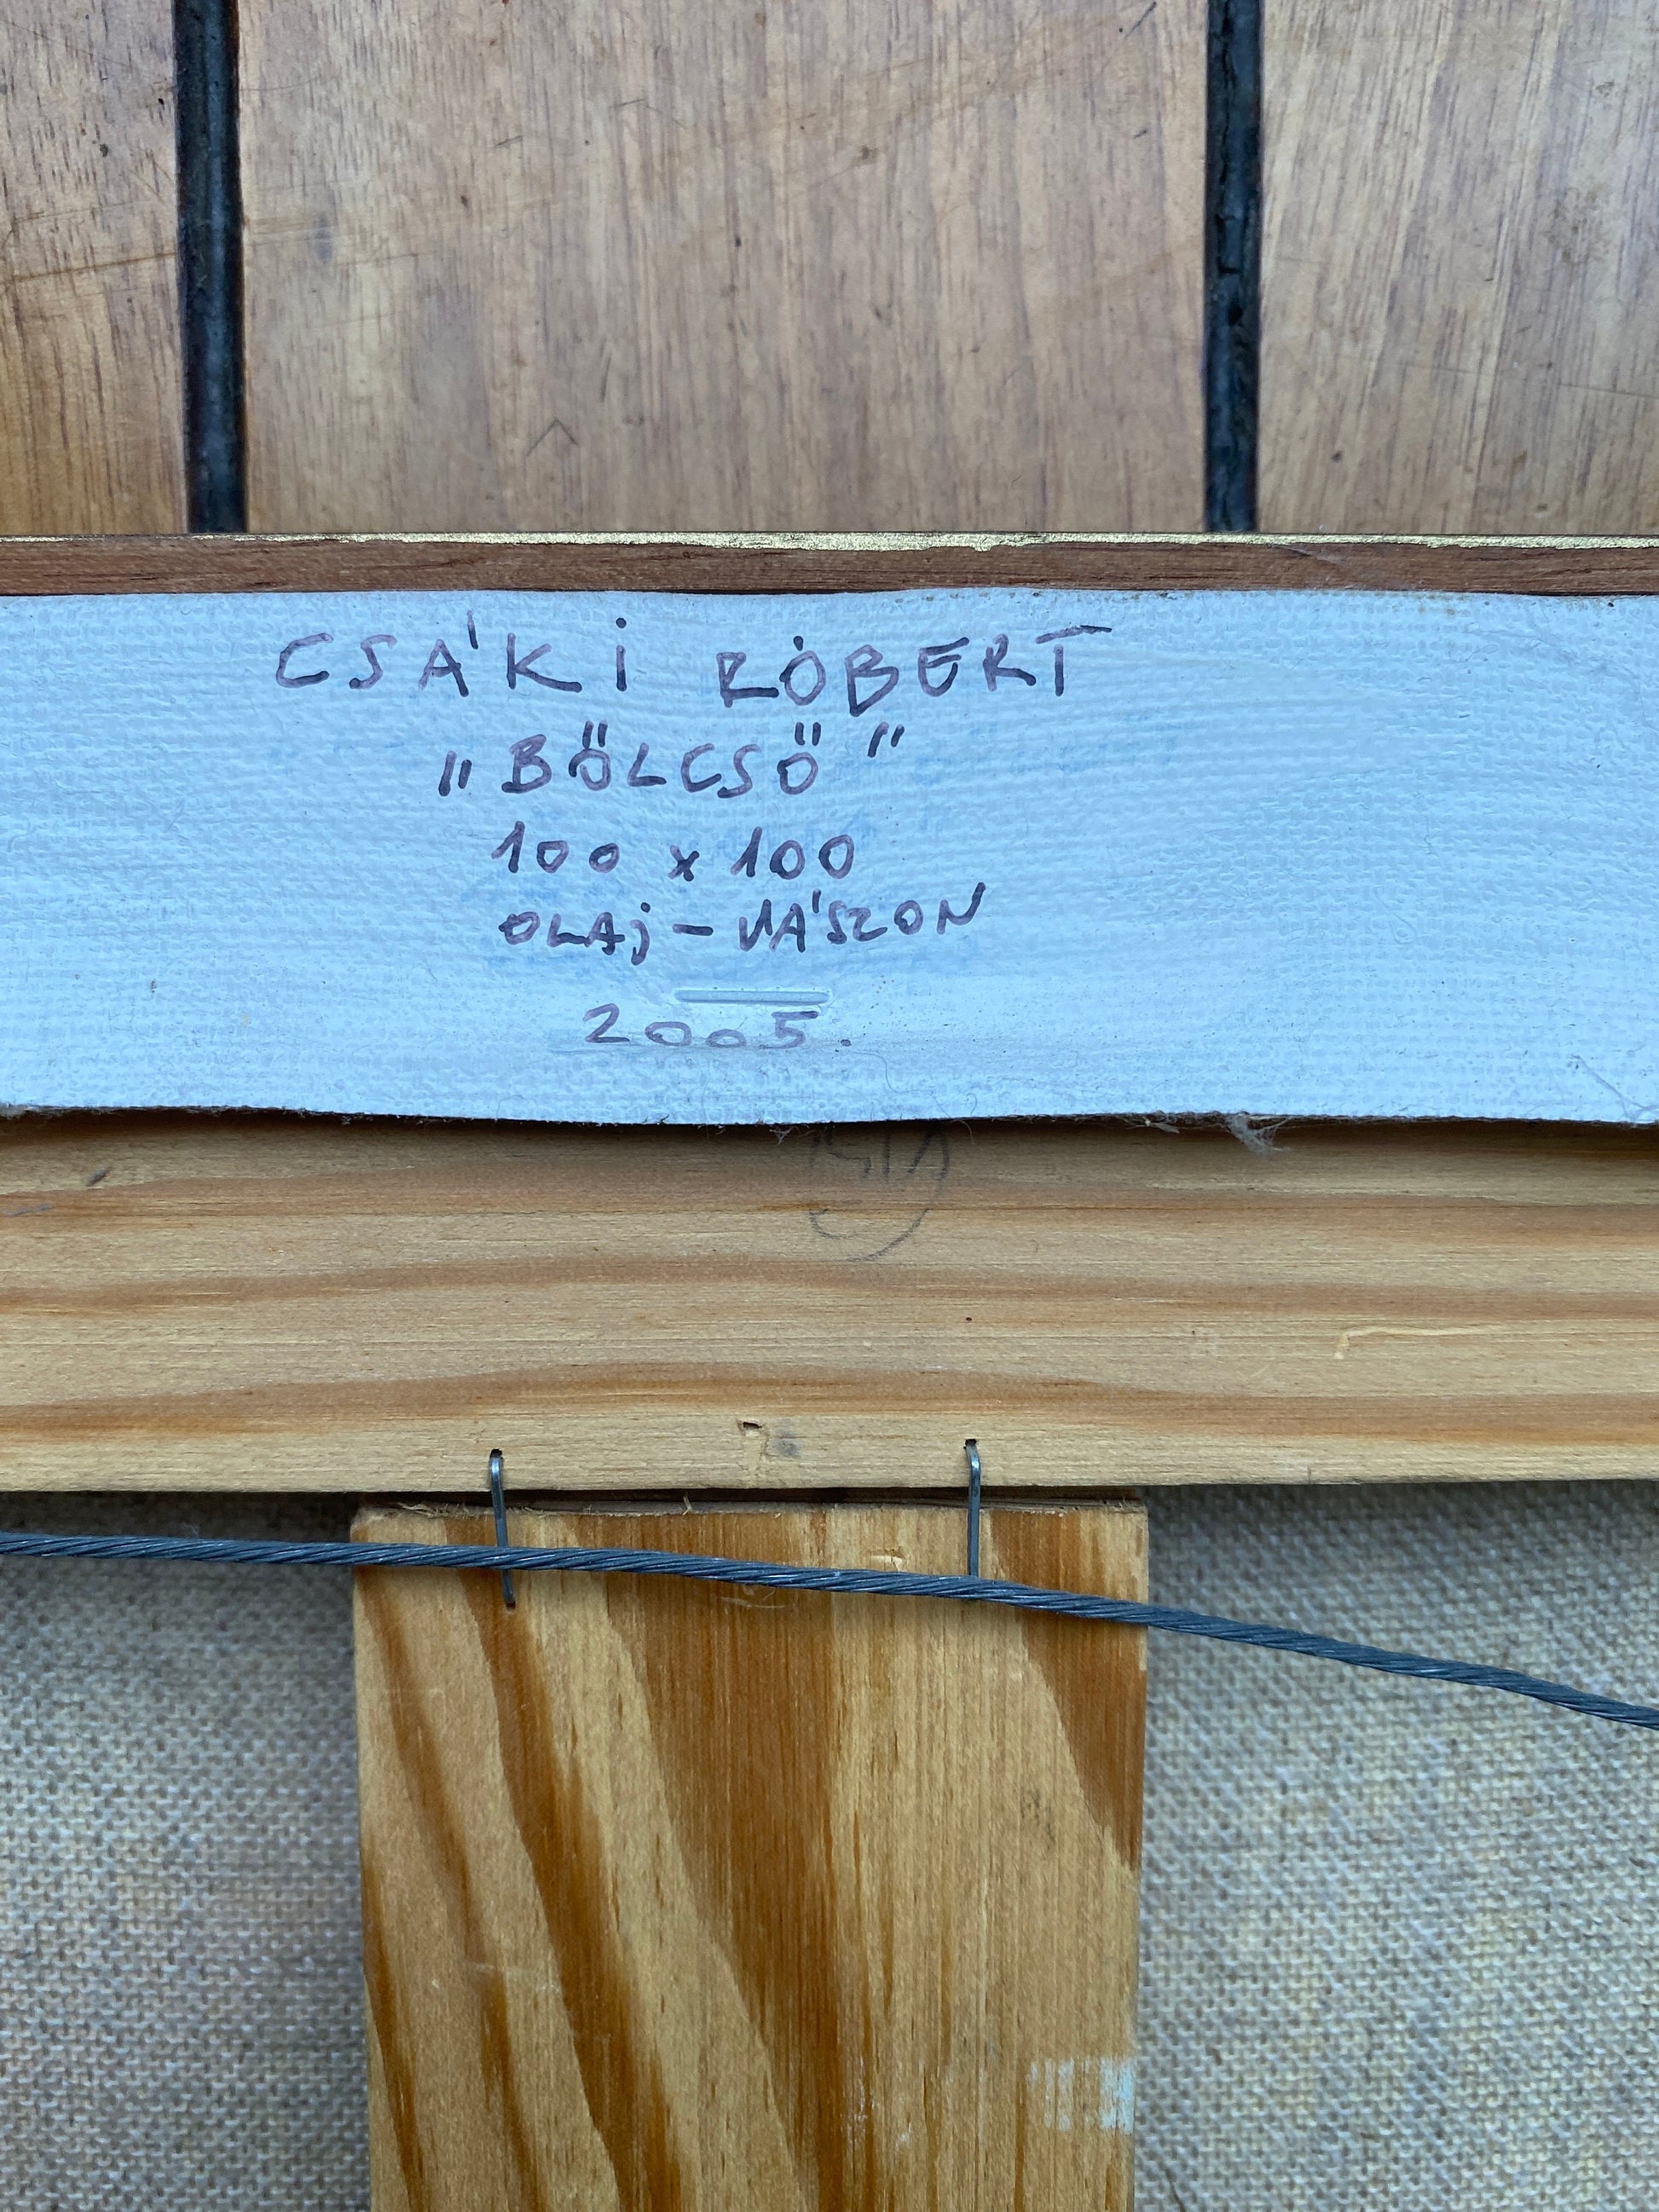 CSÁKI RÓBERT
„BŐLCSŐ"
100 x 100
OLAj - VÁSZON
2005.